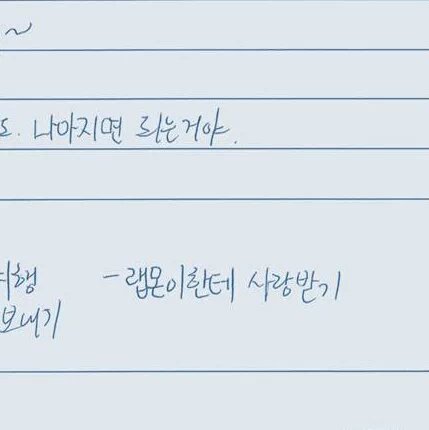 ~
도. 나아지면 되는거야.
여행 - 랩몬이한테 사랑받기
보내기